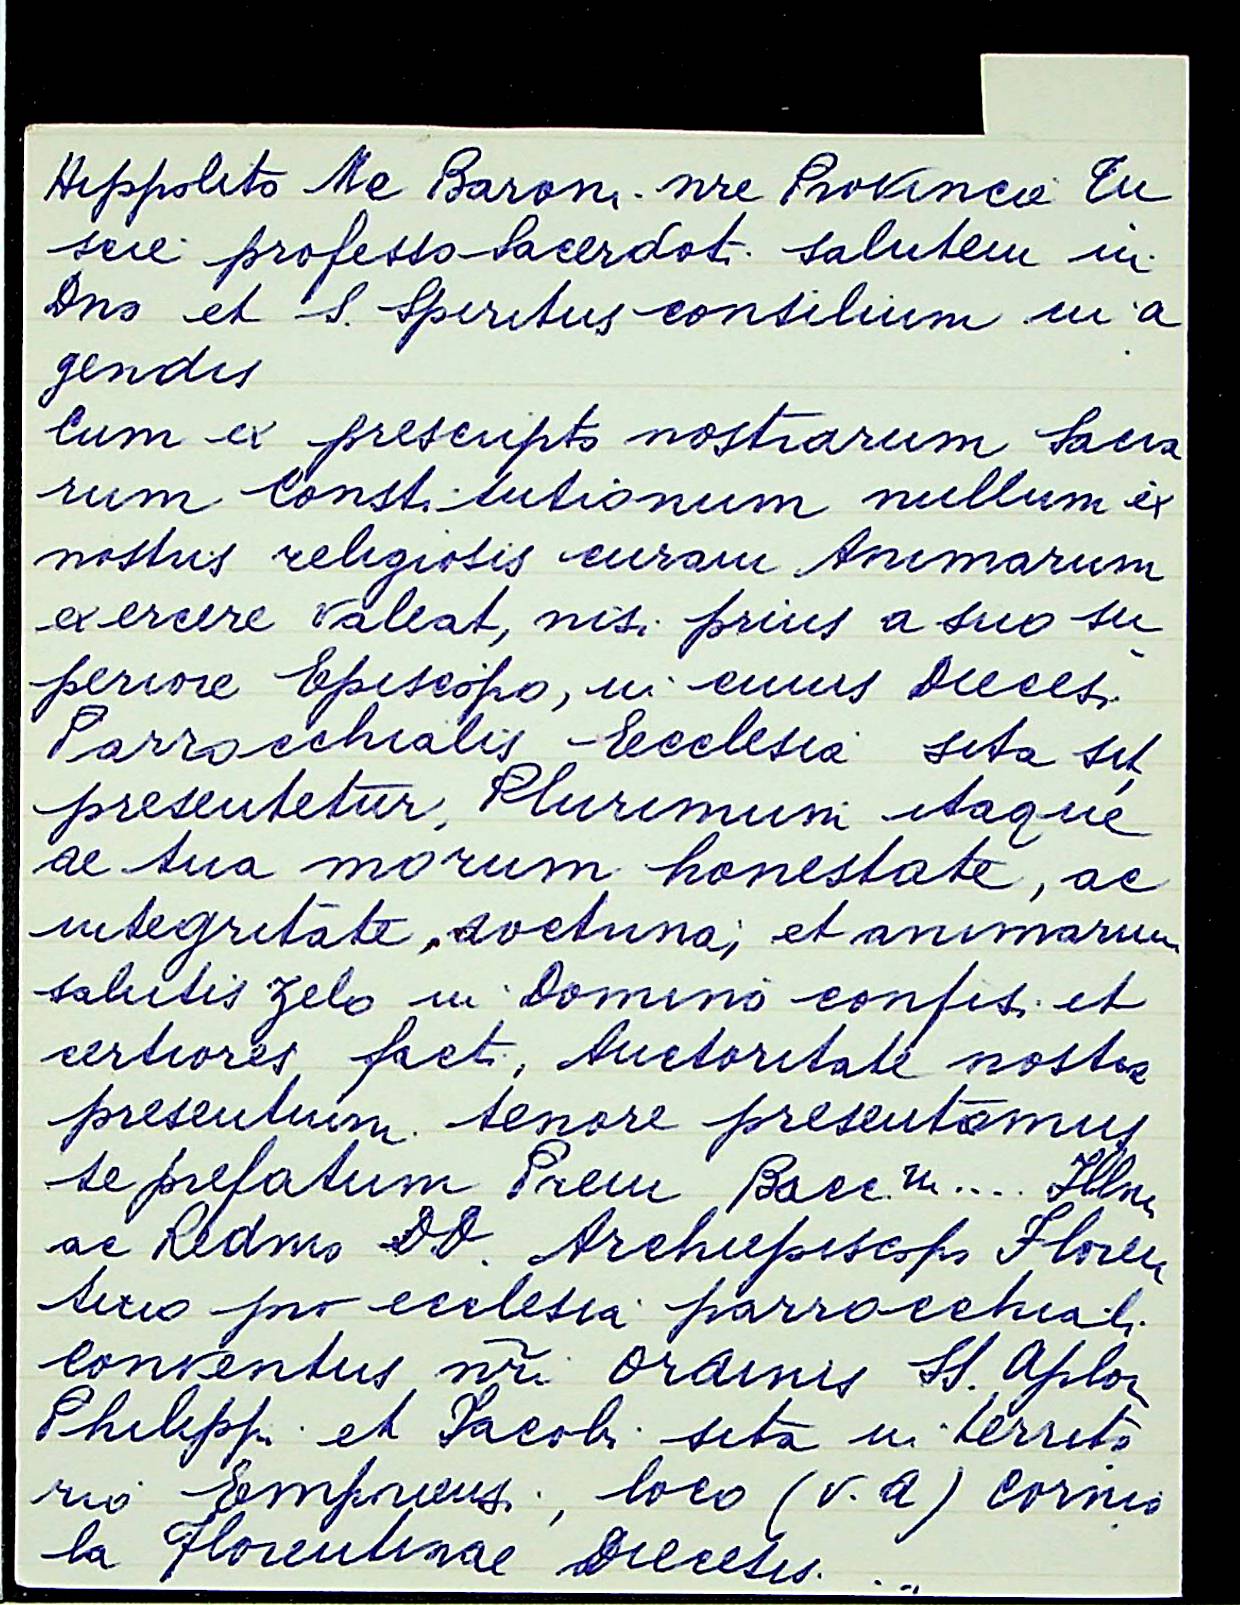 Hippolito Me Baroni nre Provincie Tu
scie professo Sacerdoti salutem in
Dno et S. Spiritus consilium in a
gendis
Cum ex prescripto nostrarum Sacra
rum Constitutionum nullum ex
nostris religiosis curam Animarum
exercere valeat, nisi prius a suo su
periore Episcopo, in cuius Diecesi
Parrocchialis Ecclesia sita sit,
presentetur, Plurimum itaque
de tua morum honestate, ac
integritate, doctrina; et animarum
salutis zelo in Domino confisi et
certiores facti, Auctoritate nostra
presentium tenore presentamus
te prefatum Prem Bacc.m .... Illmo
ac Redmo DD. Archiepiscopo Floren
tino pro ecclesia parrocchiali
Conventus nri Ordinis SS. Aplor
Philippi et Jacobi sita in territo
rio Emporiensi, loco (v. a) Cornio
la Florentinae Diecesis ...